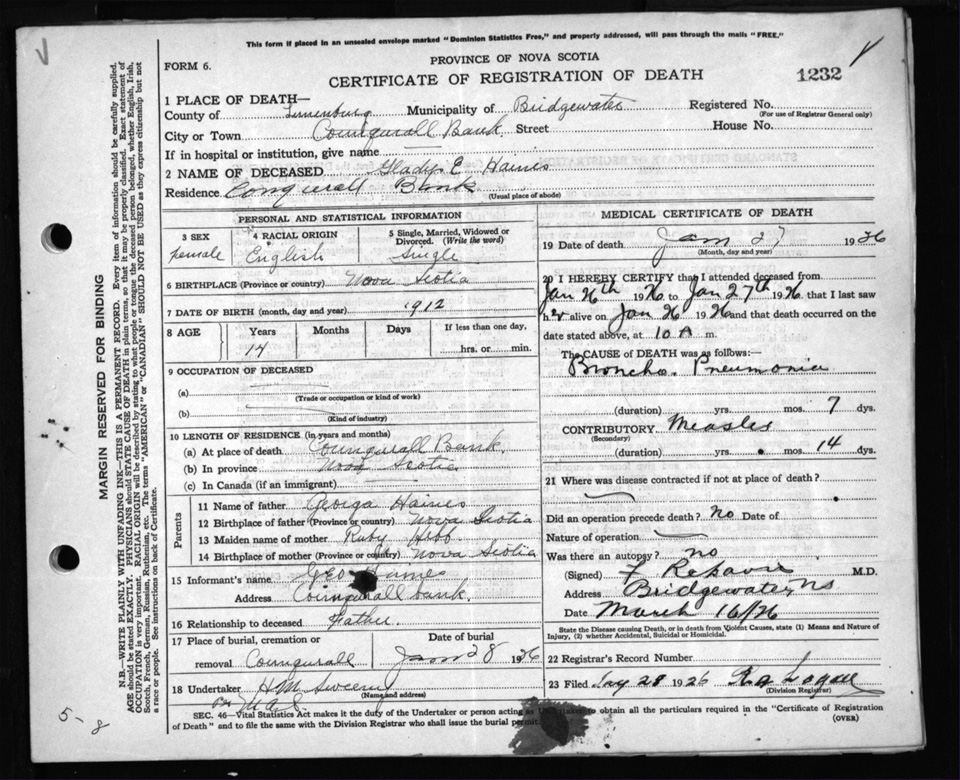 This form if placed in an unsealed envelope marked "Dominion Statistics Free," and properly addressed, will pass through the mails "FREE."
FORM 6.
PROVINCE OF NOVA SCOTIA
CERTIFICATE OF REGISTRATION OF DEATH
1232
1 PLACE OF DEATH—
County of Lunenburg Municipality of Bridgewater Registered No.
(For use of Registrar General only)
City or Town Counqurall Bank Street House No.
If in hospital or institution, give name
2 NAME OF DECEASED Gladys E Haines
Residence Conqurall Bank
(Usual place of abode)
PERSONAL AND STATISTICAL INFORMATION
3 SEX
Female
4 RACIAL ORIGIN
English
5 Single, Married, Widowed or Divorced. (Write the word)
Single
6 BIRTHPLACE (Province or country) Nova Scotia
7 DATE OF BIRTH (month, day and year) 1912
8 AGE
Years
14
Months
Days
If less than one day,
hrs. or min.
9 OCCUPATION OF DECEASED
(a)
(Trade or occupation or kind of work)
(b)
(Kind of industry)
10 LENGTH OF RESIDENCE (in years and months)
(a) At place of death Counqurall Bank.
(b) In province Nova Scotia
(c) In Canada (if an immigrant)
Parents
11 Name of father Haines
12 Birthplace of father (Province or country) Nova Scotia
13 Maiden name of mother Ruby
14 Birthplace of mother (Province or country) Nova Scotia
15 Informant's name Geo Haines
Address Counqurall bank.
16 Relationship to deceased Father.
17 Place of burial, cremation or
removal Counqurall
Date of burial
Jan 28 1926
18 Undertaker H.M. Sweeny
(Name and address)
MEDICAL CERTIFICATE OF DEATH
19 Date of death Jan 27 1926
(Month, day and year)
20 I HEREBY CERTIFY that I attended deceased from
Jan 26th 1926 to Jan 27th 1926 that I last saw
her alive on Jan 26 1926 and that death occurred on the
date stated above, at 10 A m.
The CAUSE OF DEATH was as follows:—
Broncho. Pneumonia
(duration) yrs. mos. 7 dys.
CONTRIBUTORY Measles
(Secondary)
(duration) yrs. mos. 14 dys.
21 Where was disease contracted if not at place of death?
Did an operation precede death? No Date of
Nature of operation
Was there an autopsy? no
(Signed) M.D.
Address Bridgewater NS
Date March 16/26
State the Disease causing Death, or in death from Violent Causes, state (1) Means and Nature of
Injury, (2) whether Accidental, Suicidal or Homicidal.
22 Registrar's Record Number
23 Filed 28 1926
(Division Registrar)
SEC. 46—Vital Statistics Act makes it the duty of the Undertaker or person acting as Undertaker to obtain all the particulars required in the "Certificate of Registration
of Death" and to file the same with the Division Registrar who shall issue the burial permit.
(OVER)
MARGIN RESERVED FOR BINDING
N.B.—WRITE PLAINLY WITH UNFADING INK—THIS IS A PERMANENT RECORD. Every item of information should be carefully supplied.
AGE should be stated EXACTLY. PHYSICIANS should STATE CAUSE OF DEATH in plain terms, so that it may be properly classified. Exact statement of
OCCUPATION is very important. RACIAL ORIGIN will be described by stating to what people or tongue the deceased person belonged, whether English, Irish,
Scotch, French, German, Russian, Ruthenian, etc. The terms "AMERICAN" or "CANADIAN" SHOULD NOT BE USED as they express citizenship but not
a race or people. See instructions on back of Certificate.
5-8